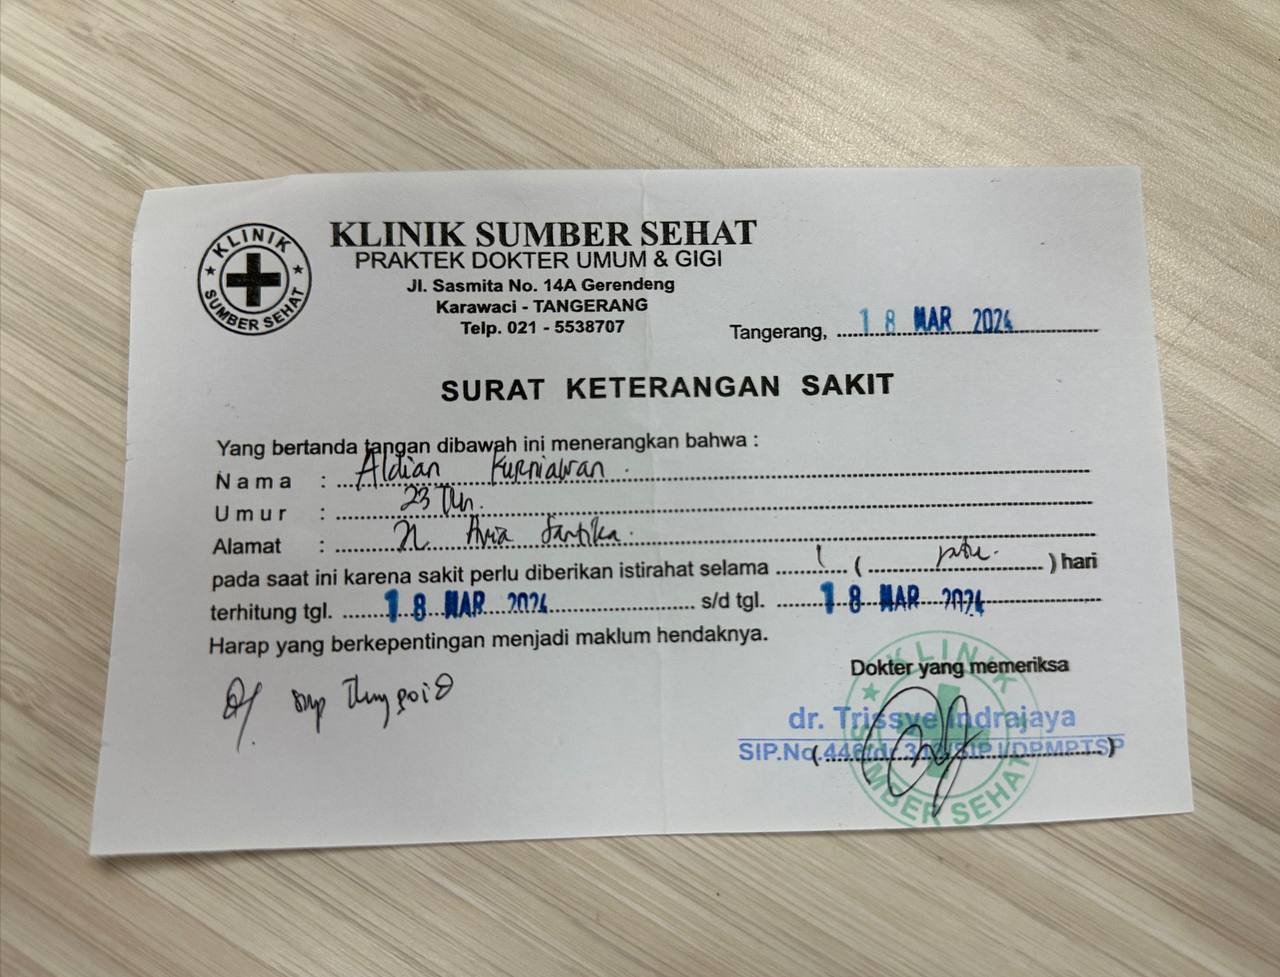 KLINIK SUMBER SEHAT
KLINIK SUMBER SEHAT
PRAKTEK DOKTER UMUM & GIGI
Jl. Sasmita No. 14A Gerendeng
Karawaci - TANGERANG
Telp. 021 - 5538707
Tangerang, 18 MAR 2024
SURAT KETERANGAN SAKIT
Yang bertanda tangan dibawah ini menerangkan bahwa :
Nama : Aldian Kurniawan
Umur : 23 Thn.
Alamat : Jl. Aria Santika.
pada saat ini karena sakit perlu diberikan istirahat selama 1 ( satu ) hari
terhitung tgl. 18 MAR 2024 s/d tgl. 18 MAR 2024
Harap yang berkepentingan menjadi maklum hendaknya.
Dokter yang memeriksa
dr. Trissye Indrajaya
SIP.No.446/dr. /SIP.I/DPMPTSP
KLINIK SUMBER SEHAT